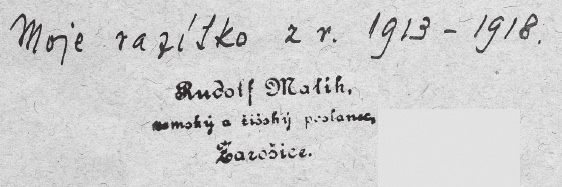 Moje razítko z r. 1913 - 1918.
Rudolf Malík,
zemský a říšský poslanec,
Žarošice.